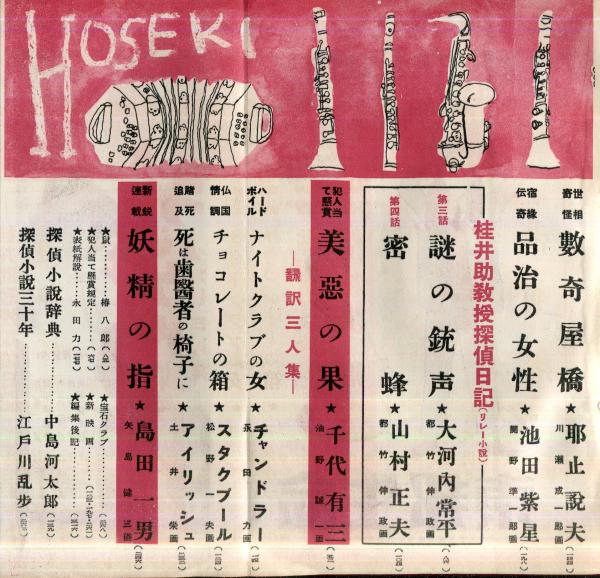 HOSEKI
世相奇怪 數奇屋橋★耶止説夫
川瀬成一郎画
宿縁伝奇 品治の女性★池田紫星
桂井助教授探偵日記(リレー小説)
第三話 謎の銃声★大河内常平
都竹伸政画
第四話 密蜂★山村正夫
都竹伸政画
犯人当て懸賞 美惡の果★千代有三
油野誠一画
―翻訳三人集―
ハードボイル ナイトクラブの女★チャンドラー
永田力画
仏国情調 チョコレートの箱★スタクプール
松野一夫画
賭死追及 死は歯醫者の椅子に★アイリッシュ
土井栄画
新鋭連載 妖精の指★島田一男
矢島健三画
★鼠…………椿八郎
★犯人当て懸賞規定
★表紙解説…永田力
★宝石クラブ
★新映画
★編集後記
探偵小説辞典………中島河太郎
探偵小説三十年………江戸川乱歩